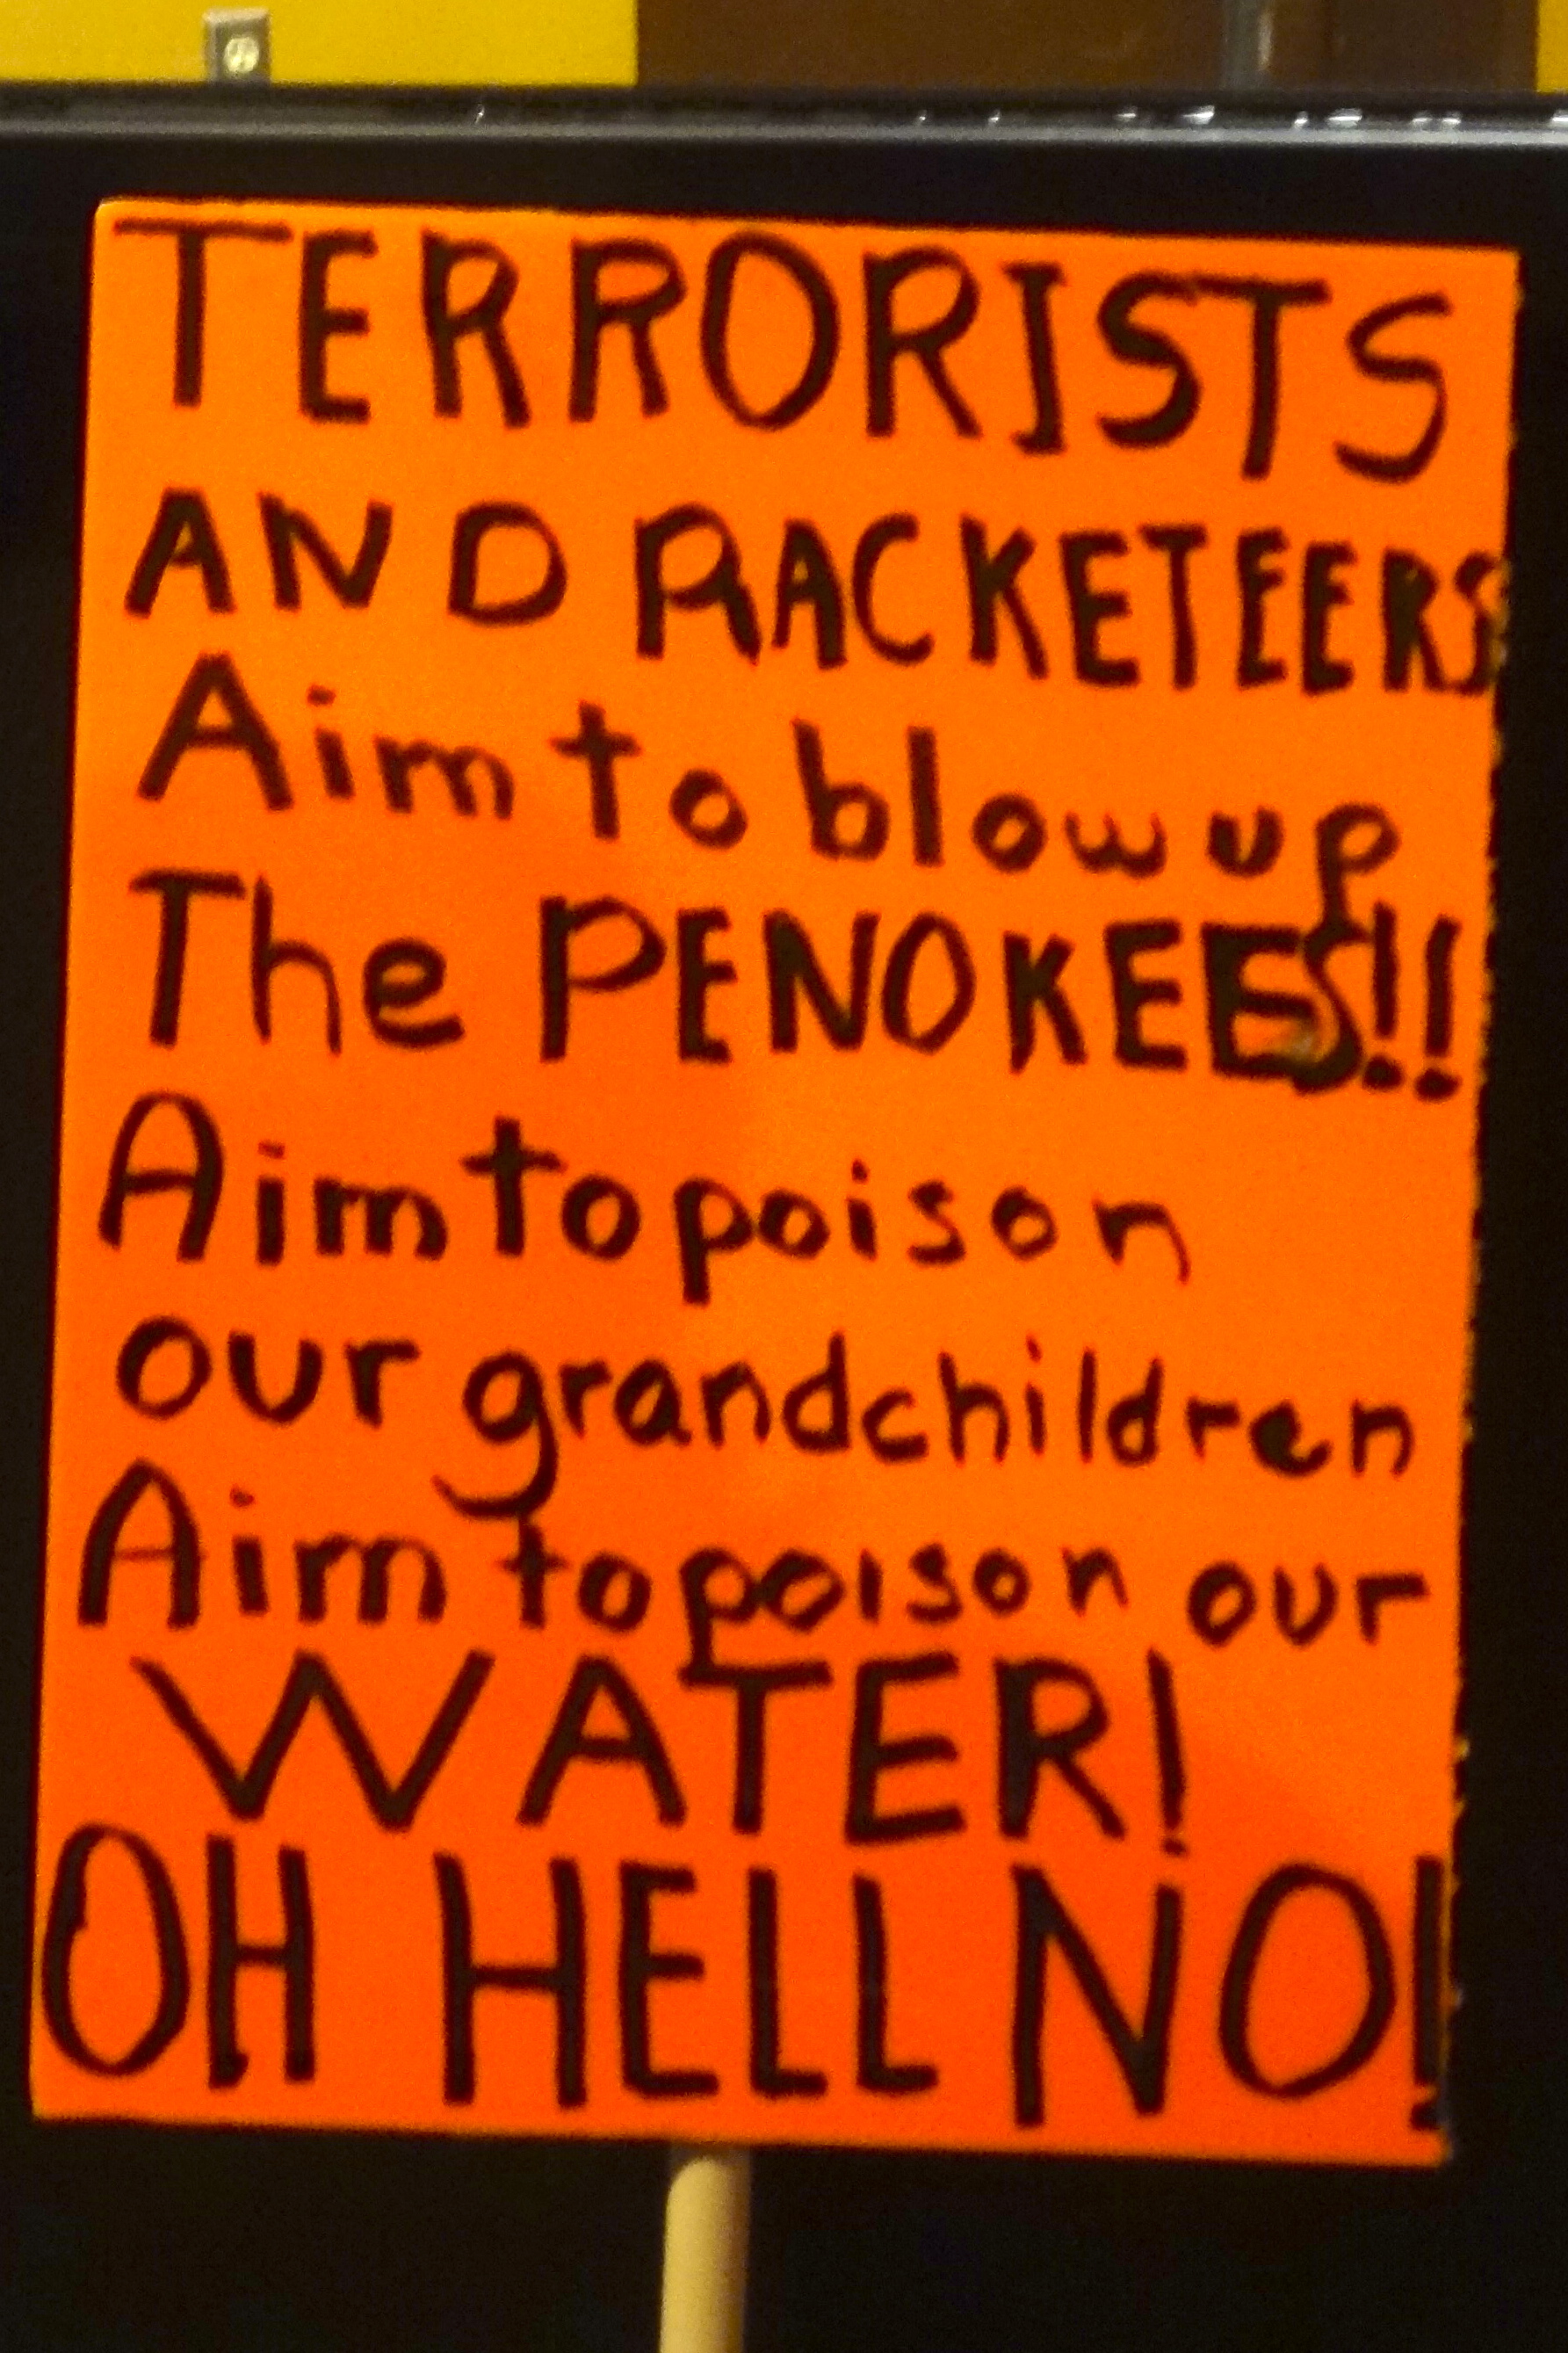 TERRORISTS
AND RACKETEERS
Aim to blow up
The PENOKEES!!
Aim to poison
our grandchildren
Aim to poison our
WATER!
OH HELL NO!